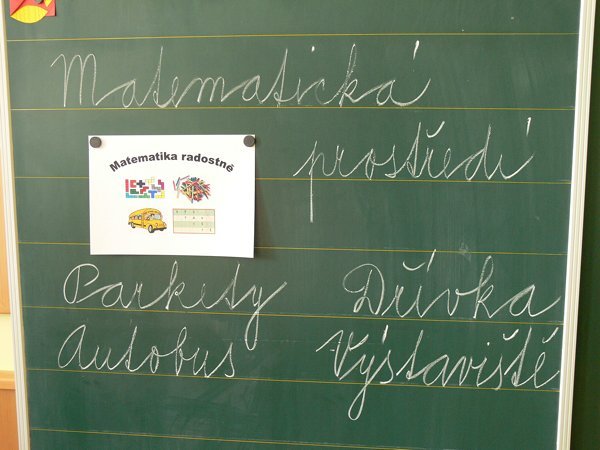 Matematická
prostředí
Matematika radostně
Parkety Dřívka
Autobus Výstaviště